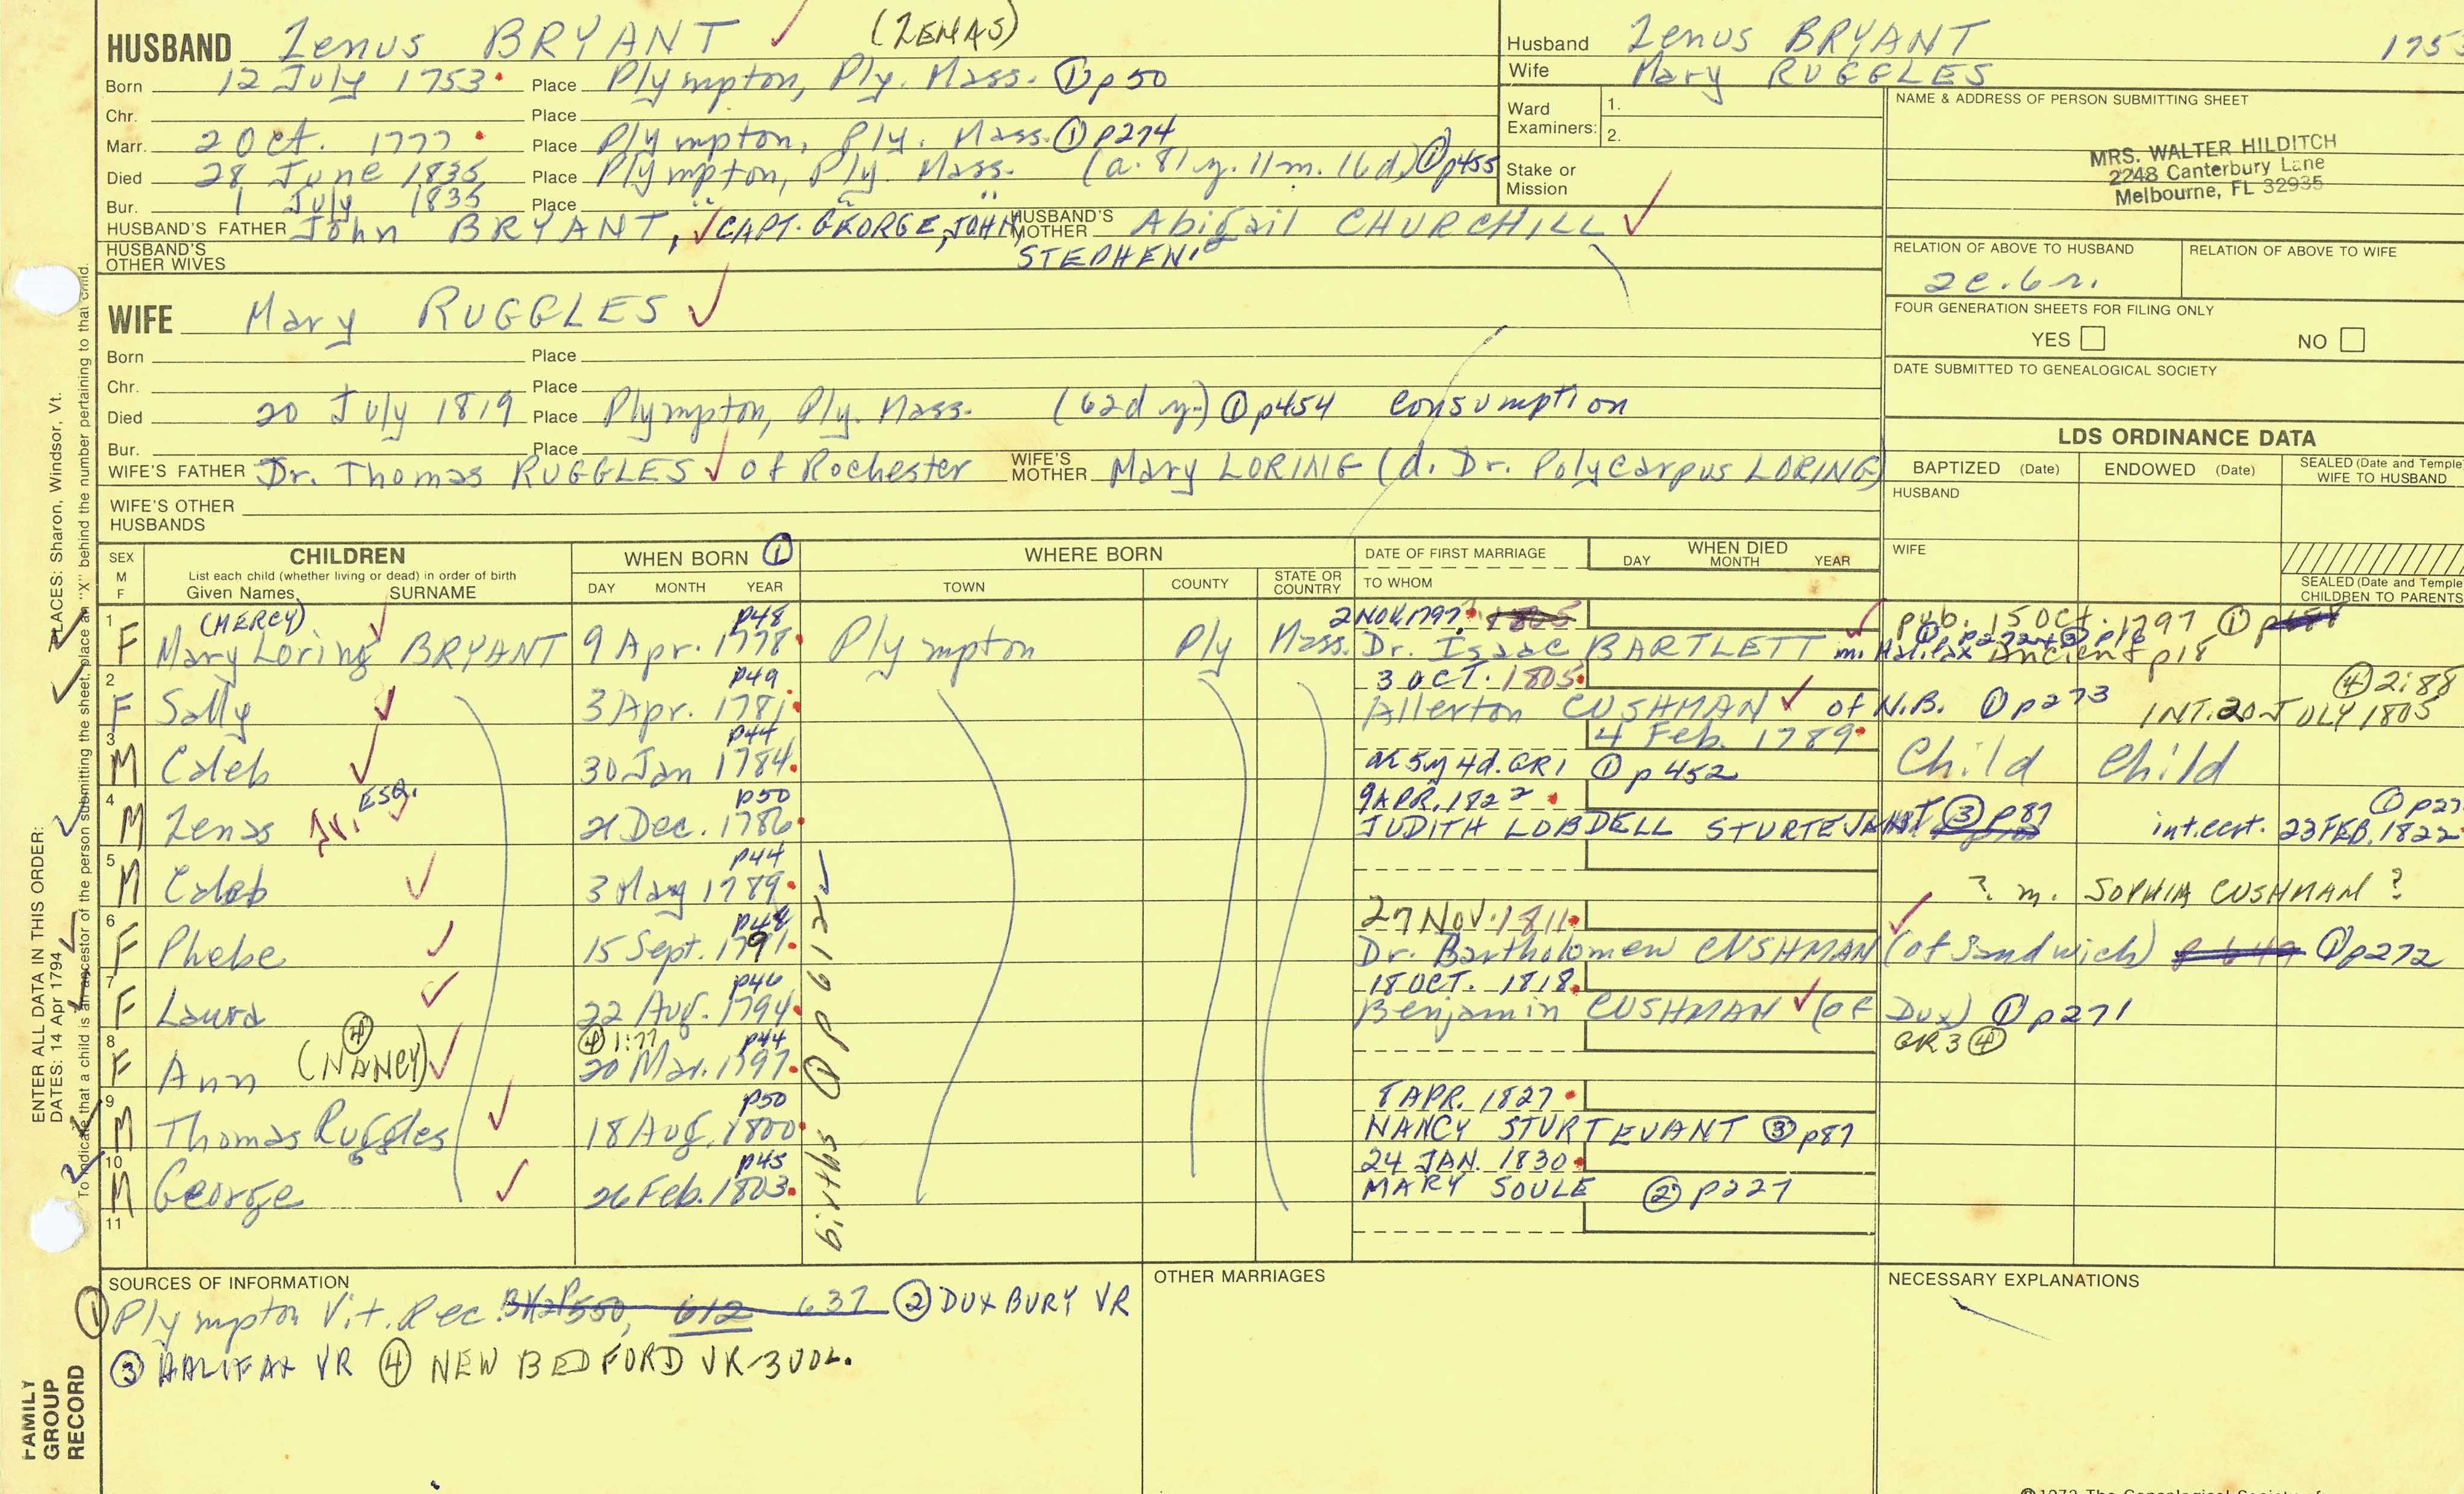 HUSBAND Zenus BRYANT (ZENAS)
Born 12 July 1753 Place Plympton, Ply. Mass. ① p50
Chr. Place
Marr. 2 Oct. 1777 Place Plympton, Ply. Mass. ① p274
Died 28 June 1835 Place Plympton, Ply. Mass. (a. 81 y. 11 m. 16 d.) ① p455
Bur. 1 July 1835 Place " " "
HUSBAND'S FATHER John BRYANT, CAPT. GEORGE, JOHN, STEPHEN HUSBAND'S MOTHER Abigail CHURCHILL
HUSBAND'S OTHER WIVES
WIFE Mary RUGGLES
Born Place
Chr. Place
Died 20 July 1819 Place Plympton, Ply. Mass. (62d y.) ① p454 Consumption
Bur. Place
WIFE'S FATHER Dr. Thomas RUGGLES of Rochester WIFE'S MOTHER Mary LORING (d. Dr. Polycarpus LORING)
WIFE'S OTHER HUSBANDS
Husband Zenus BRYANT 1753
Wife Mary RUGGLES
Ward Examiners: 1.
2.
Stake or Mission
NAME & ADDRESS OF PERSON SUBMITTING SHEET
MRS. WALTER HILDITCH
2248 Canterbury Lane
Melbourne, FL 32935
RELATION OF ABOVE TO HUSBAND RELATION OF ABOVE TO WIFE
FOUR GENERATION SHEETS FOR FILING ONLY
YES NO
DATE SUBMITTED TO GENEALOGICAL SOCIETY
LDS ORDINANCE DATA
BAPTIZED (Date) ENDOWED (Date) SEALED (Date and Temple) WIFE TO HUSBAND
HUSBAND
WIFE
SEALED (Date and Temple) CHILDREN TO PARENTS
SEX M F CHILDREN WHEN BORN ① WHERE BORN DATE OF FIRST MARRIAGE WHEN DIED
List each child (whether living or dead) in order of birth
Given Names SURNAME DAY MONTH YEAR TOWN COUNTY STATE OR COUNTRY TO WHOM DAY MONTH YEAR
1 (MERCY) p48 2 NOV. 1797 pub. 15 Oct. 1797 ①
F Mary Loring BRYANT 9 Apr. 1778 Plympton Ply Mass. Dr. Isaac BARTLETT m. Halifax Ancient p18
① p272 + ③ p18
2 p49 3 OCT. 1805 ④ 2:88
F Sally 3 Apr. 1781 Allerton CUSHMAN of N.B. ① p273 INT. 20 JULY 1805
3 p44 4 Feb. 1789
M Caleb 30 Jan 1784 ae 5y 4d. GR1 ① p452 Child Child
4 ESQ. p50 9 APR. 1822 ① p27
M Zenas Jr. 21 Dec. 1786 JUDITH LOBDELL STURTEVANT ③ p87 int. cert. 23 FEB. 1822
5 p44
M Caleb 3 May 1789 ? m. SOPHIA CUSHMAN ?
6 p48 27 NOV. 1811
F Phebe 15 Sept. 1791 Dr. Bartholomew CUSHMAN (of Sandwich) ① p272
7 p46 18 OCT. 1818
F Laura 22 Aug. 1794 Benjamin CUSHMAN (of Dux) ① p271
8 ④ ④ 1:77 p44 GR3 ④
F Ann (NANCY) 20 Mar. 1797
9 p50 8 APR. 1827
M Thomas Ruggles 18 Aug. 1800 NANCY STURTEVANT ③ p87
10 p45 24 JAN. 1830
M George 26 Feb. 1803 MARY SOULE ② p227
11
births ① p 612
SOURCES OF INFORMATION OTHER MARRIAGES NECESSARY EXPLANATIONS
① Plympton Vit. Rec. 612 637 ② DUXBURY VR
③ HALIFAX VR ④ NEW BEDFORD VR-3 VOL.
ENTER ALL DATA IN THIS ORDER:
DATES: 14 Apr 1794
PLACES: Sharon, Windsor, Vt.
To indicate that a child is an ancestor of the person submitting the sheet, place an "X" behind the number pertaining to that child.
FAMILY
GROUP
RECORD